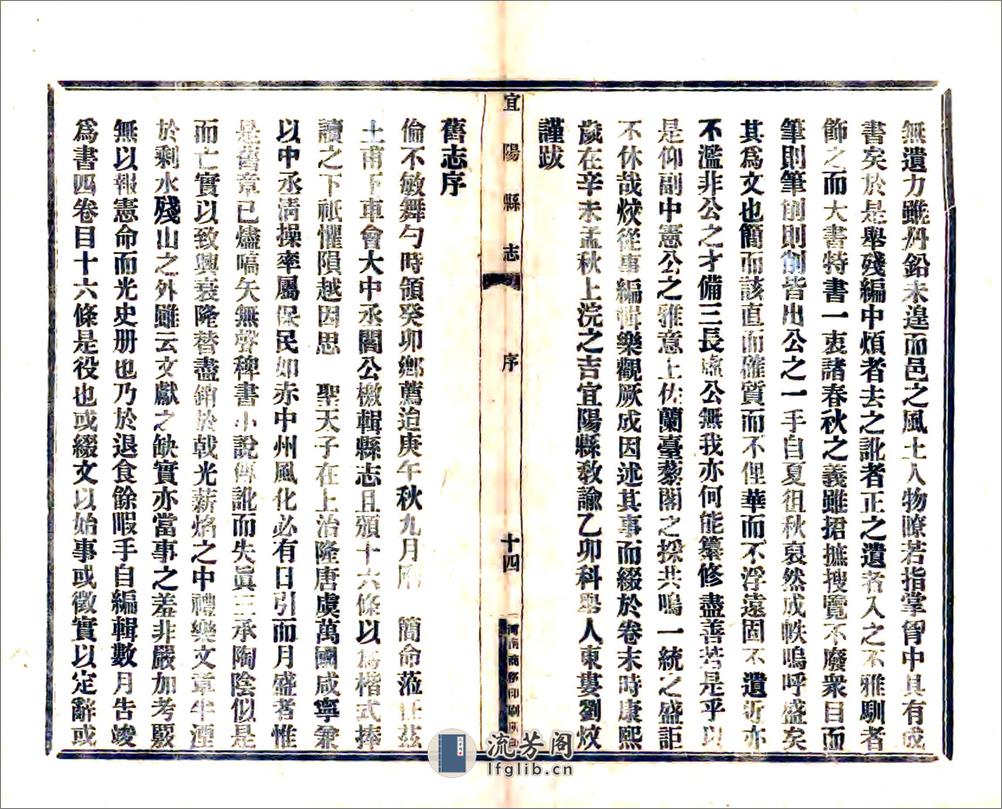 無遺力雖丹鉛未遑而邑之風土人物瞭若指掌胷中具有成
書矣於是舉殘編中煩者去之訛者正之遺者入之不雅馴者
飾之而大書特書一衷諸春秋之義雖捃摭搜覽不廢衆目而
筆則筆削則削皆出公之一手自夏徂秋裒然成帙嗚呼盛矣
其爲文也簡而該直而確質而不俚華而不浮遠固不遺近亦
不濫非公之才備三長虛公無我亦何能纂修盡善若是乎以
是仰副中憲公之雅意上佐蘭臺藜閣之採共鳴一統之盛詎
不休哉炆從事編輯樂觀厥成因述其事而綴於卷末時康熙
歲在辛未孟秋上浣之吉宜陽縣敎諭乙卯科舉人東婁劉炆
謹跋
宜陽縣志 序 十四 河南商務印刷所
舊志序
倫不敏舞勺時領癸卯鄉薦迨庚午秋九月 簡命蒞茲
土甫下車會大中丞閻公檄輯縣志且頒十六條以爲楷式捧
讀之下祇懼隕越因思 聖天子在上治隆唐虞萬國咸寧兼
以中丞淸操率屬保民如赤中州風化必有日引而月盛者惟
是舊章已燼嗃矢無聲稗書小說傳訛而失眞三承陶陰似是
而亡實以致興衰隆替盡銷於戟光薪焰之中禮樂文章半湮
於剩水殘山之外雖云文獻之缺實亦當事之羞非嚴加考覈
無以報憲命而光史册也乃於退食餘暇手自編輯數月告竣
爲書四卷目十六條是役也或綴文以始事或徵實以定辭或
流芳阁
lfglib.cn